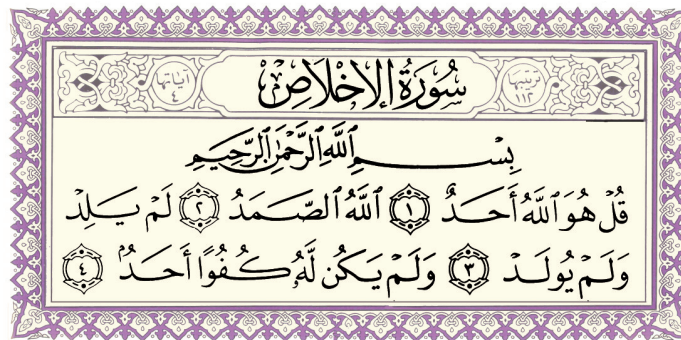 ترتيبها سُورَةُ الإِخْلَاصِ آياتها
١١٢ ٤
بِسْمِ ٱللَّهِ ٱلرَّحْمَٰنِ ٱلرَّحِيمِ
قُلْ هُوَ ٱللَّهُ أَحَدٌ ١ ٱللَّهُ ٱلصَّمَدُ ٢ لَمْ يَلِدْ
وَلَمْ يُولَدْ ٣ وَلَمْ يَكُن لَّهُۥ كُفُوًا أَحَدُۢ ٤